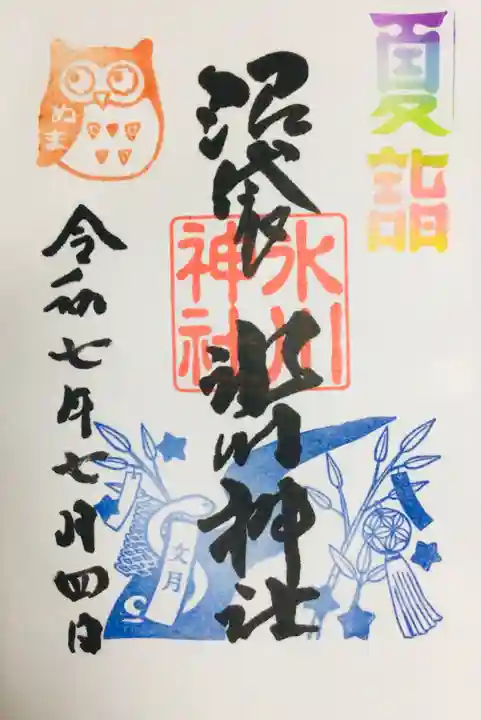 夏詣
沼袋 氷川神社
氷川
神社
ぬま
令和七年七月四日
文月